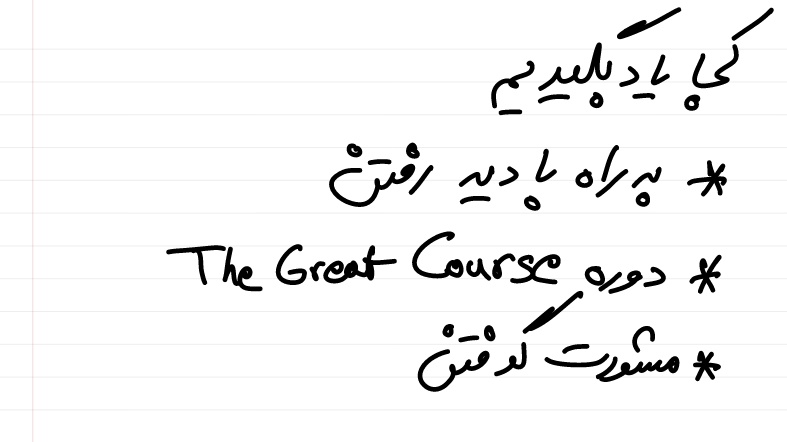 کجا یاد بگیریم
* به راه بادیه رفتن
* دوره The Great Course
* مشورت گرفتن